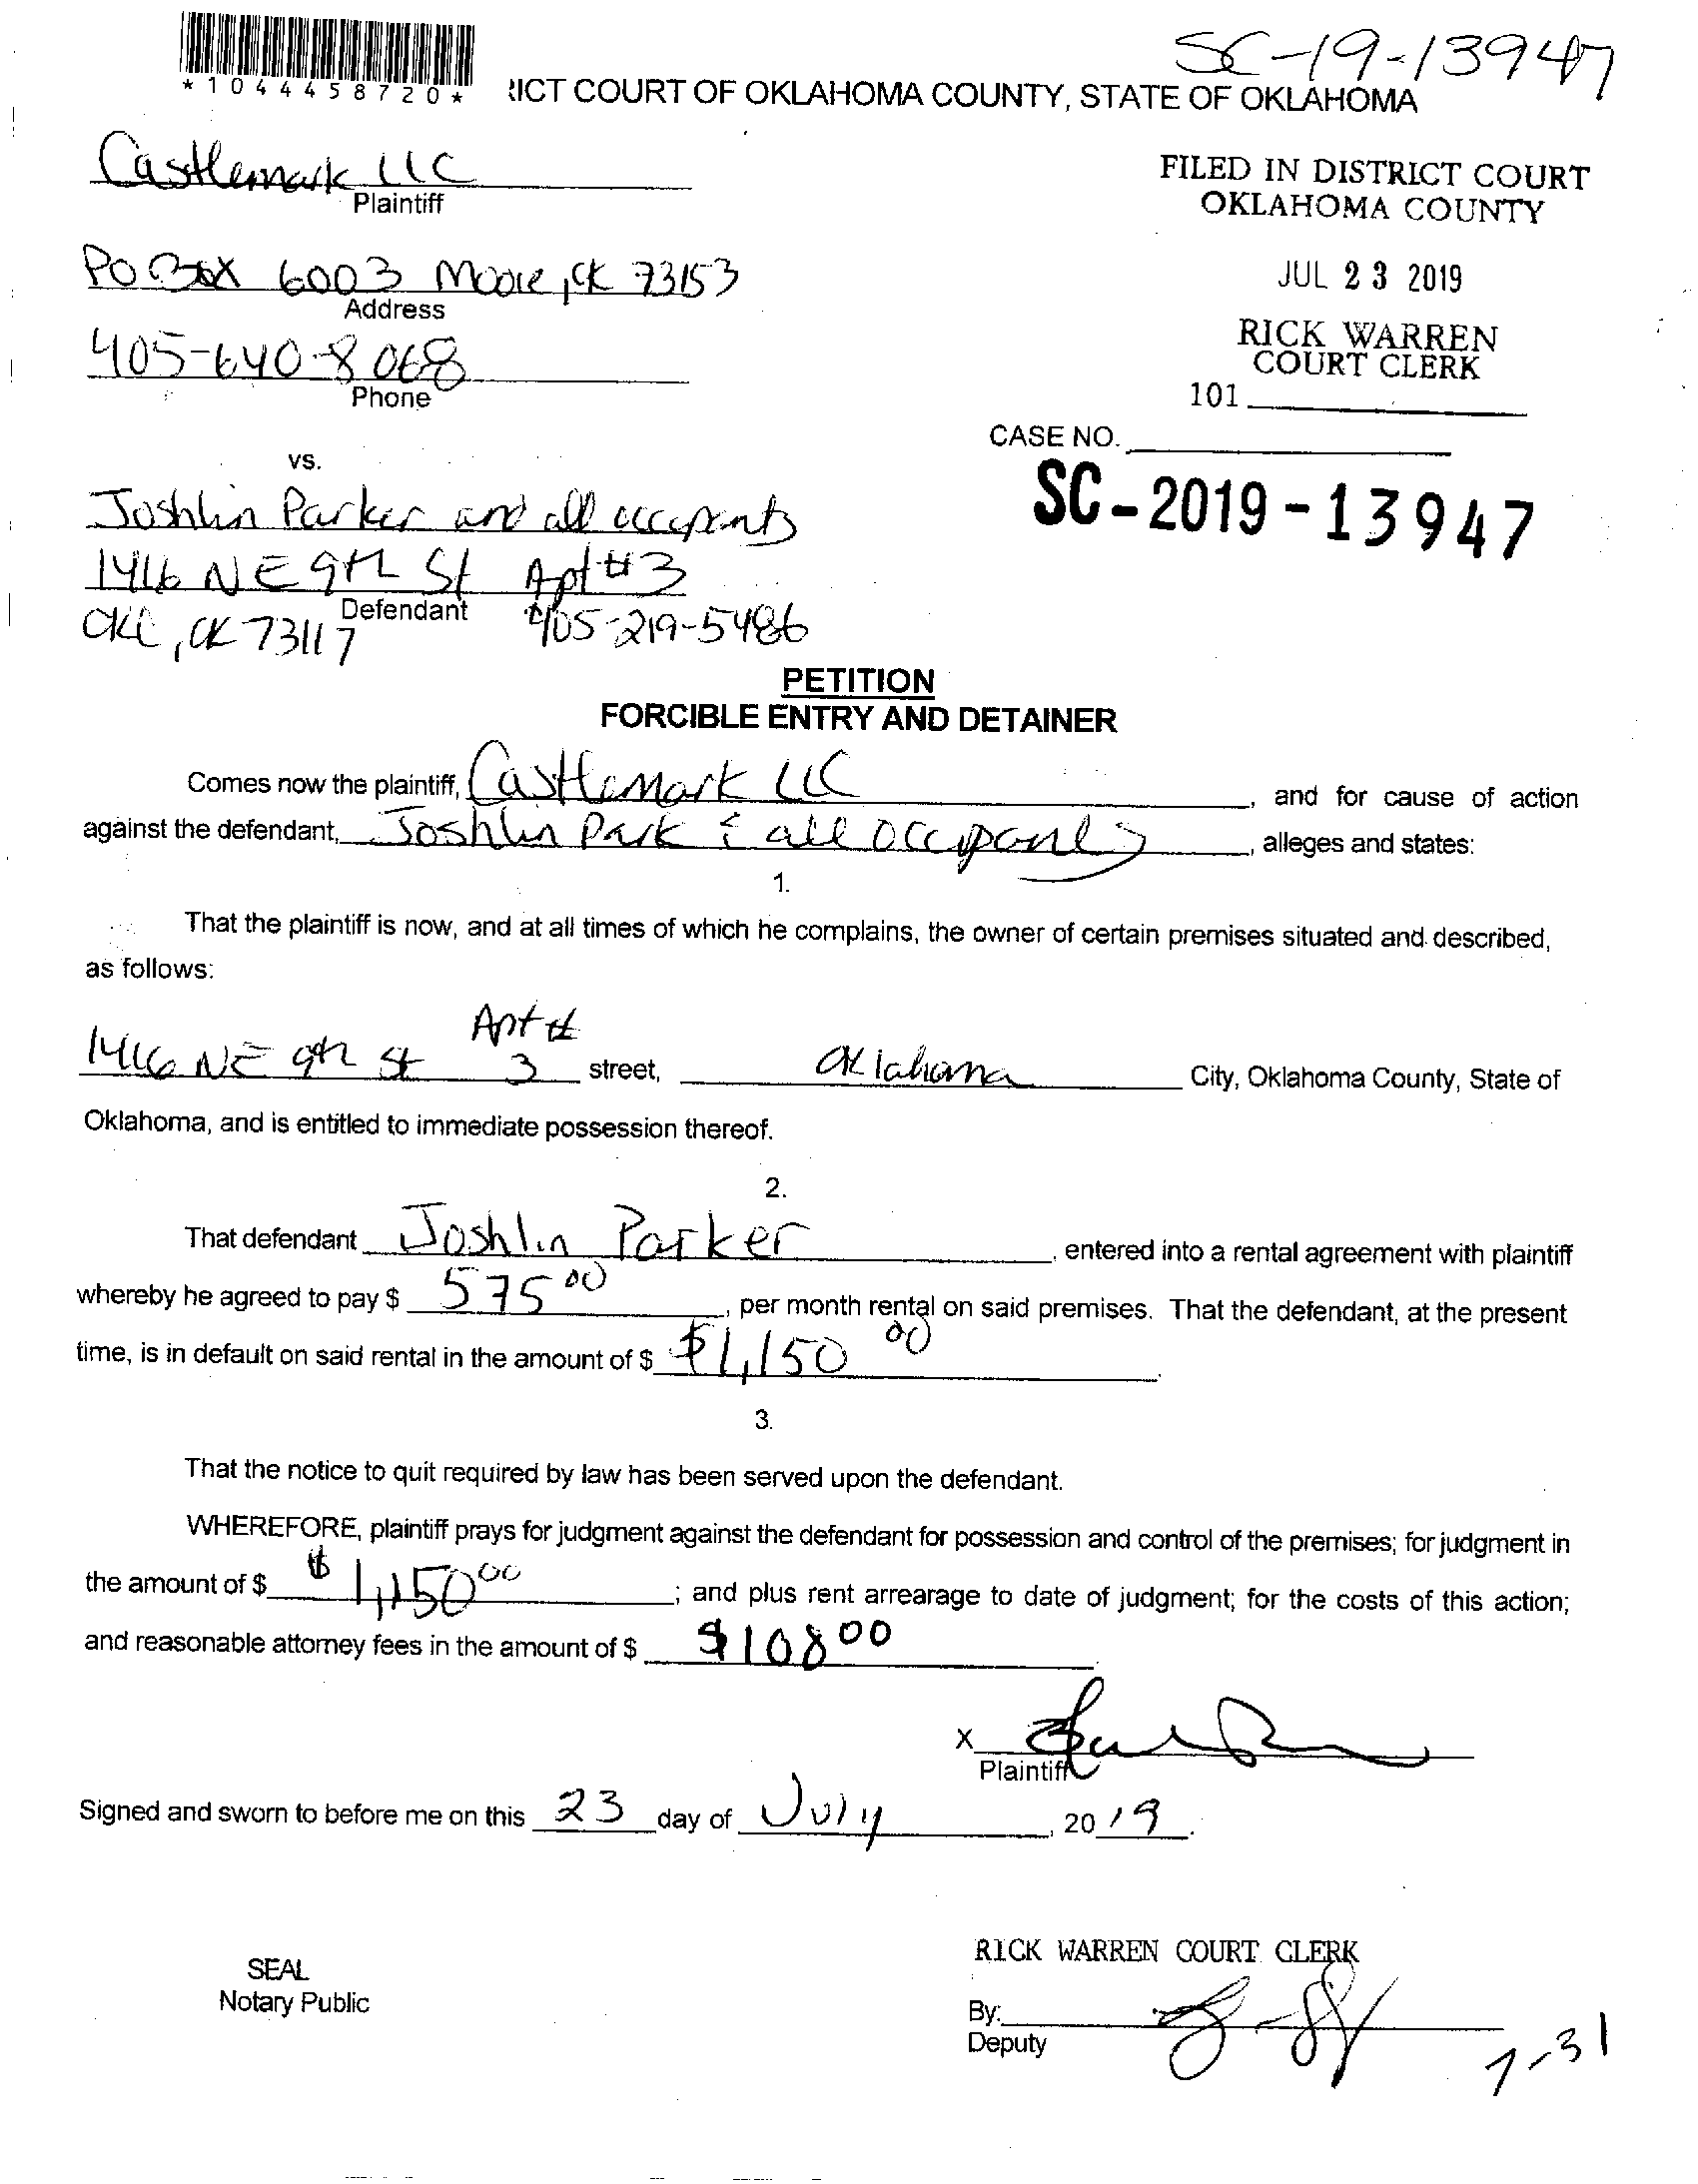 SC-19-13947
*1044458720*
RICT COURT OF OKLAHOMA COUNTY, STATE OF OKLAHOMA
Castlemark LLC
Plaintiff
FILED IN DISTRICT COURT
OKLAHOMA COUNTY
PO Box 6003 Moore, OK 73153
Address
JUL 23 2019
405-640-8068
Phone
RICK WARREN
COURT CLERK
101
CASE NO.
SC-2019-13947
vs.
Joshlin Parker and all occupants
1416 NE 9th St Apt #3
Defendant
OKC, OK 73117 405-219-5486
PETITION
FORCIBLE ENTRY AND DETAINER
Comes now the plaintiff, Castlemark LLC, and for cause of action
against the defendant, Joshlin Park & all occupants, alleges and states:
1.
That the plaintiff is now, and at all times of which he complains, the owner of certain premises situated and described,
as follows:
1416 NE 9th St Apt # 3 street, Oklahoma City, Oklahoma County, State of
Oklahoma, and is entitled to immediate possession thereof.
2.
That defendant Joshlin Parker, entered into a rental agreement with plaintiff
whereby he agreed to pay $ 575 00, per month rental on said premises. That the defendant, at the present
time, is in default on said rental in the amount of $ $1,150 00.
3.
That the notice to quit required by law has been served upon the defendant.
WHEREFORE, plaintiff prays for judgment against the defendant for possession and control of the premises; for judgment in
the amount of $ $1,150 00; and plus rent arrearage to date of judgment; for the costs of this action;
and reasonable attorney fees in the amount of $ $108 00
X
Plaintiff
Signed and sworn to before me on this 23 day of July, 2019.
SEAL
Notary Public
RICK WARREN COURT CLERK
By:
Deputy
7-31